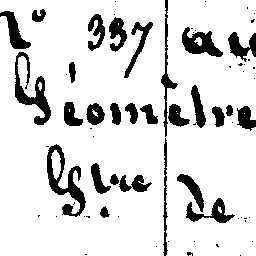 N° 337 au
Géomètre
Gtre de